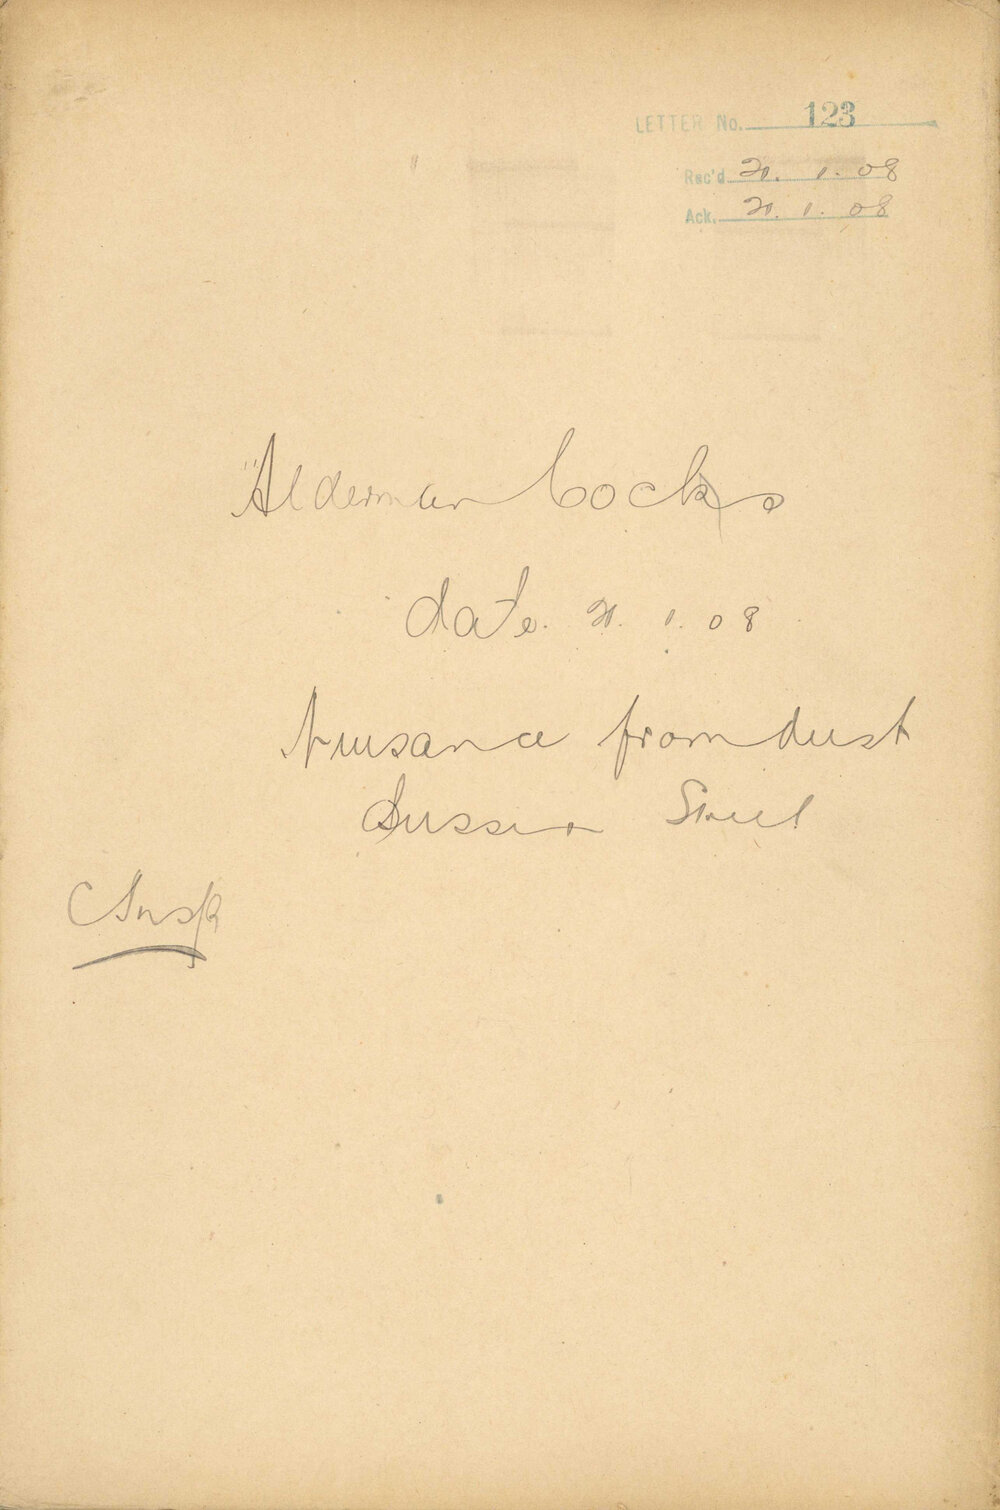 LETTER No. 123
Rec'd 21. 1. 08
Ack. 21. 1. 08
"Alderman Cocks
date. 21. 1. 08
Nuisance from dust
Sussex Street
C Insp